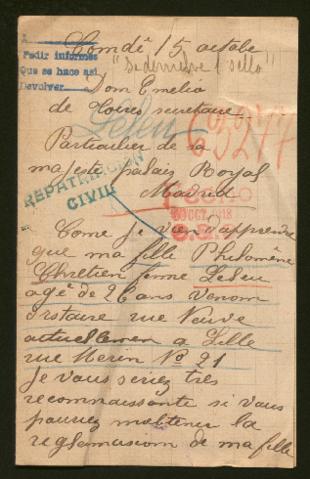 A
Pedir informes
Que se hace asi.
Devolver
Comdé 15 octobe
"Se derrière 1 sello"
Dom Emelio
de Torres secretaire
Leseu
65277
Particulier de sa
majeste palais Royal
Madrid
REPATRIACION
CIVIL
OCT. 1918
Come je vien d'apprendre
que ma fille Philomène
Chretien femme Leseu
agé de 26 ans venom
d'istaire rue Neuve
actuellemen a Lille
rue Meren No 21
Je vous seriez très
reconnaissante si vous
pouriez m'obtenir la
reglamasion de ma fille